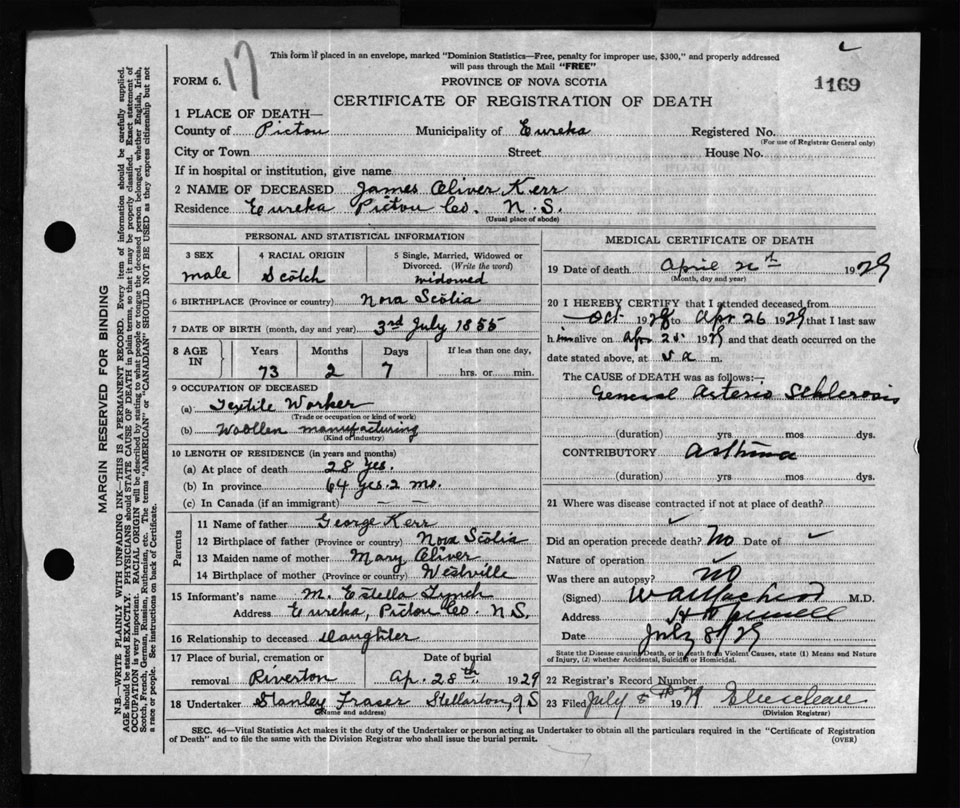 This form if placed in an envelope, marked "Dominion Statistics—Free, penalty for improper use, $300," and properly addressed
will pass through the Mail "FREE"
17
FORM 6.
PROVINCE OF NOVA SCOTIA
1169
CERTIFICATE OF REGISTRATION OF DEATH
1 PLACE OF DEATH—
County of Pictou Municipality of Eureka Registered No.
(For use of Registrar General only)
City or Town Street House No.
If in hospital or institution, give name
2 NAME OF DECEASED James Oliver Kerr
Residence Eureka Pictou Co. N.S.
(Usual place of abode)
PERSONAL AND STATISTICAL INFORMATION
3 SEX 4 RACIAL ORIGIN 5 Single, Married, Widowed or
Divorced. (Write the word)
male Scotch widowed
6 BIRTHPLACE (Province or country) Nova Scotia
7 DATE OF BIRTH (month, day and year) 3rd July 1855
8 AGE IN Years Months Days If less than one day,
73 2 7 hrs. or min.
9 OCCUPATION OF DECEASED
(a) Textile Worker
(Trade or occupation or kind of work)
(b) Woollen manufacturing
(Kind of industry)
10 LENGTH OF RESIDENCE (in years and months)
(a) At place of death 28 yrs.
(b) In province 64 yrs. 2 mo.
(c) In Canada (if an immigrant) — —
Parents
11 Name of father George Kerr
12 Birthplace of father (Province or country) Nova Scotia
13 Maiden name of mother Mary Oliver
14 Birthplace of mother (Province or country) Westville
15 Informant's name M. Estella Lynch
Address Eureka, Pictou Co. N.S.
16 Relationship to deceased daughter
17 Place of burial, cremation or Date of burial
removal Riverton Ap. 28th 1929
18 Undertaker Stanley Fraser Stellarton, N S
(Name and address)
MEDICAL CERTIFICATE OF DEATH
19 Date of death April 1929
(Month, day and year)
20 I HEREBY CERTIFY that I attended deceased from
Oct 1928 to Apr 26 1929 that I last saw
him alive on Apr 1929 and that death occurred on the
date stated above, at 5 a m.
The CAUSE of DEATH was as follows:—
General Arterio Schlerosis
(duration) yrs mos dys.
CONTRIBUTORY Asthma
(duration) yrs mos dys.
21 Where was disease contracted if not at place of death?
Did an operation precede death? No Date of
Nature of operation
Was there an autopsy? No
(Signed) M.D.
Address Hopewell
Date July 8/29
State the Disease causing Death, or in death from Violent Causes, state (1) Means and Nature
of Injury, (2) whether Accidental, Suicidal or Homicidal.
22 Registrar's Record Number
23 Filed July 8th 1929
(Division Registrar)
SEC. 46—Vital Statistics Act makes it the duty of the Undertaker or person acting as Undertaker to obtain all the particulars required in the "Certificate of Registration
of Death" and to file the same with the Division Registrar who shall issue the burial permit.
(OVER)
MARGIN RESERVED FOR BINDING
N.B.—WRITE PLAINLY WITH UNFADING INK—THIS IS A PERMANENT RECORD. Every item of information should be carefully supplied.
AGE should be stated EXACTLY. PHYSICIANS should STATE CAUSE OF DEATH in plain terms, so that it may be properly classified. Exact statement of
OCCUPATION is very important. RACIAL ORIGIN will be described by stating to what people or tongue the deceased person belonged, whether English, Irish,
Scotch, French, German, Russian, Ruthenian, etc. The terms "AMERICAN" or "CANADIAN" SHOULD NOT BE USED as they express citizenship but not
a race or people. See instructions on back of Certificate.